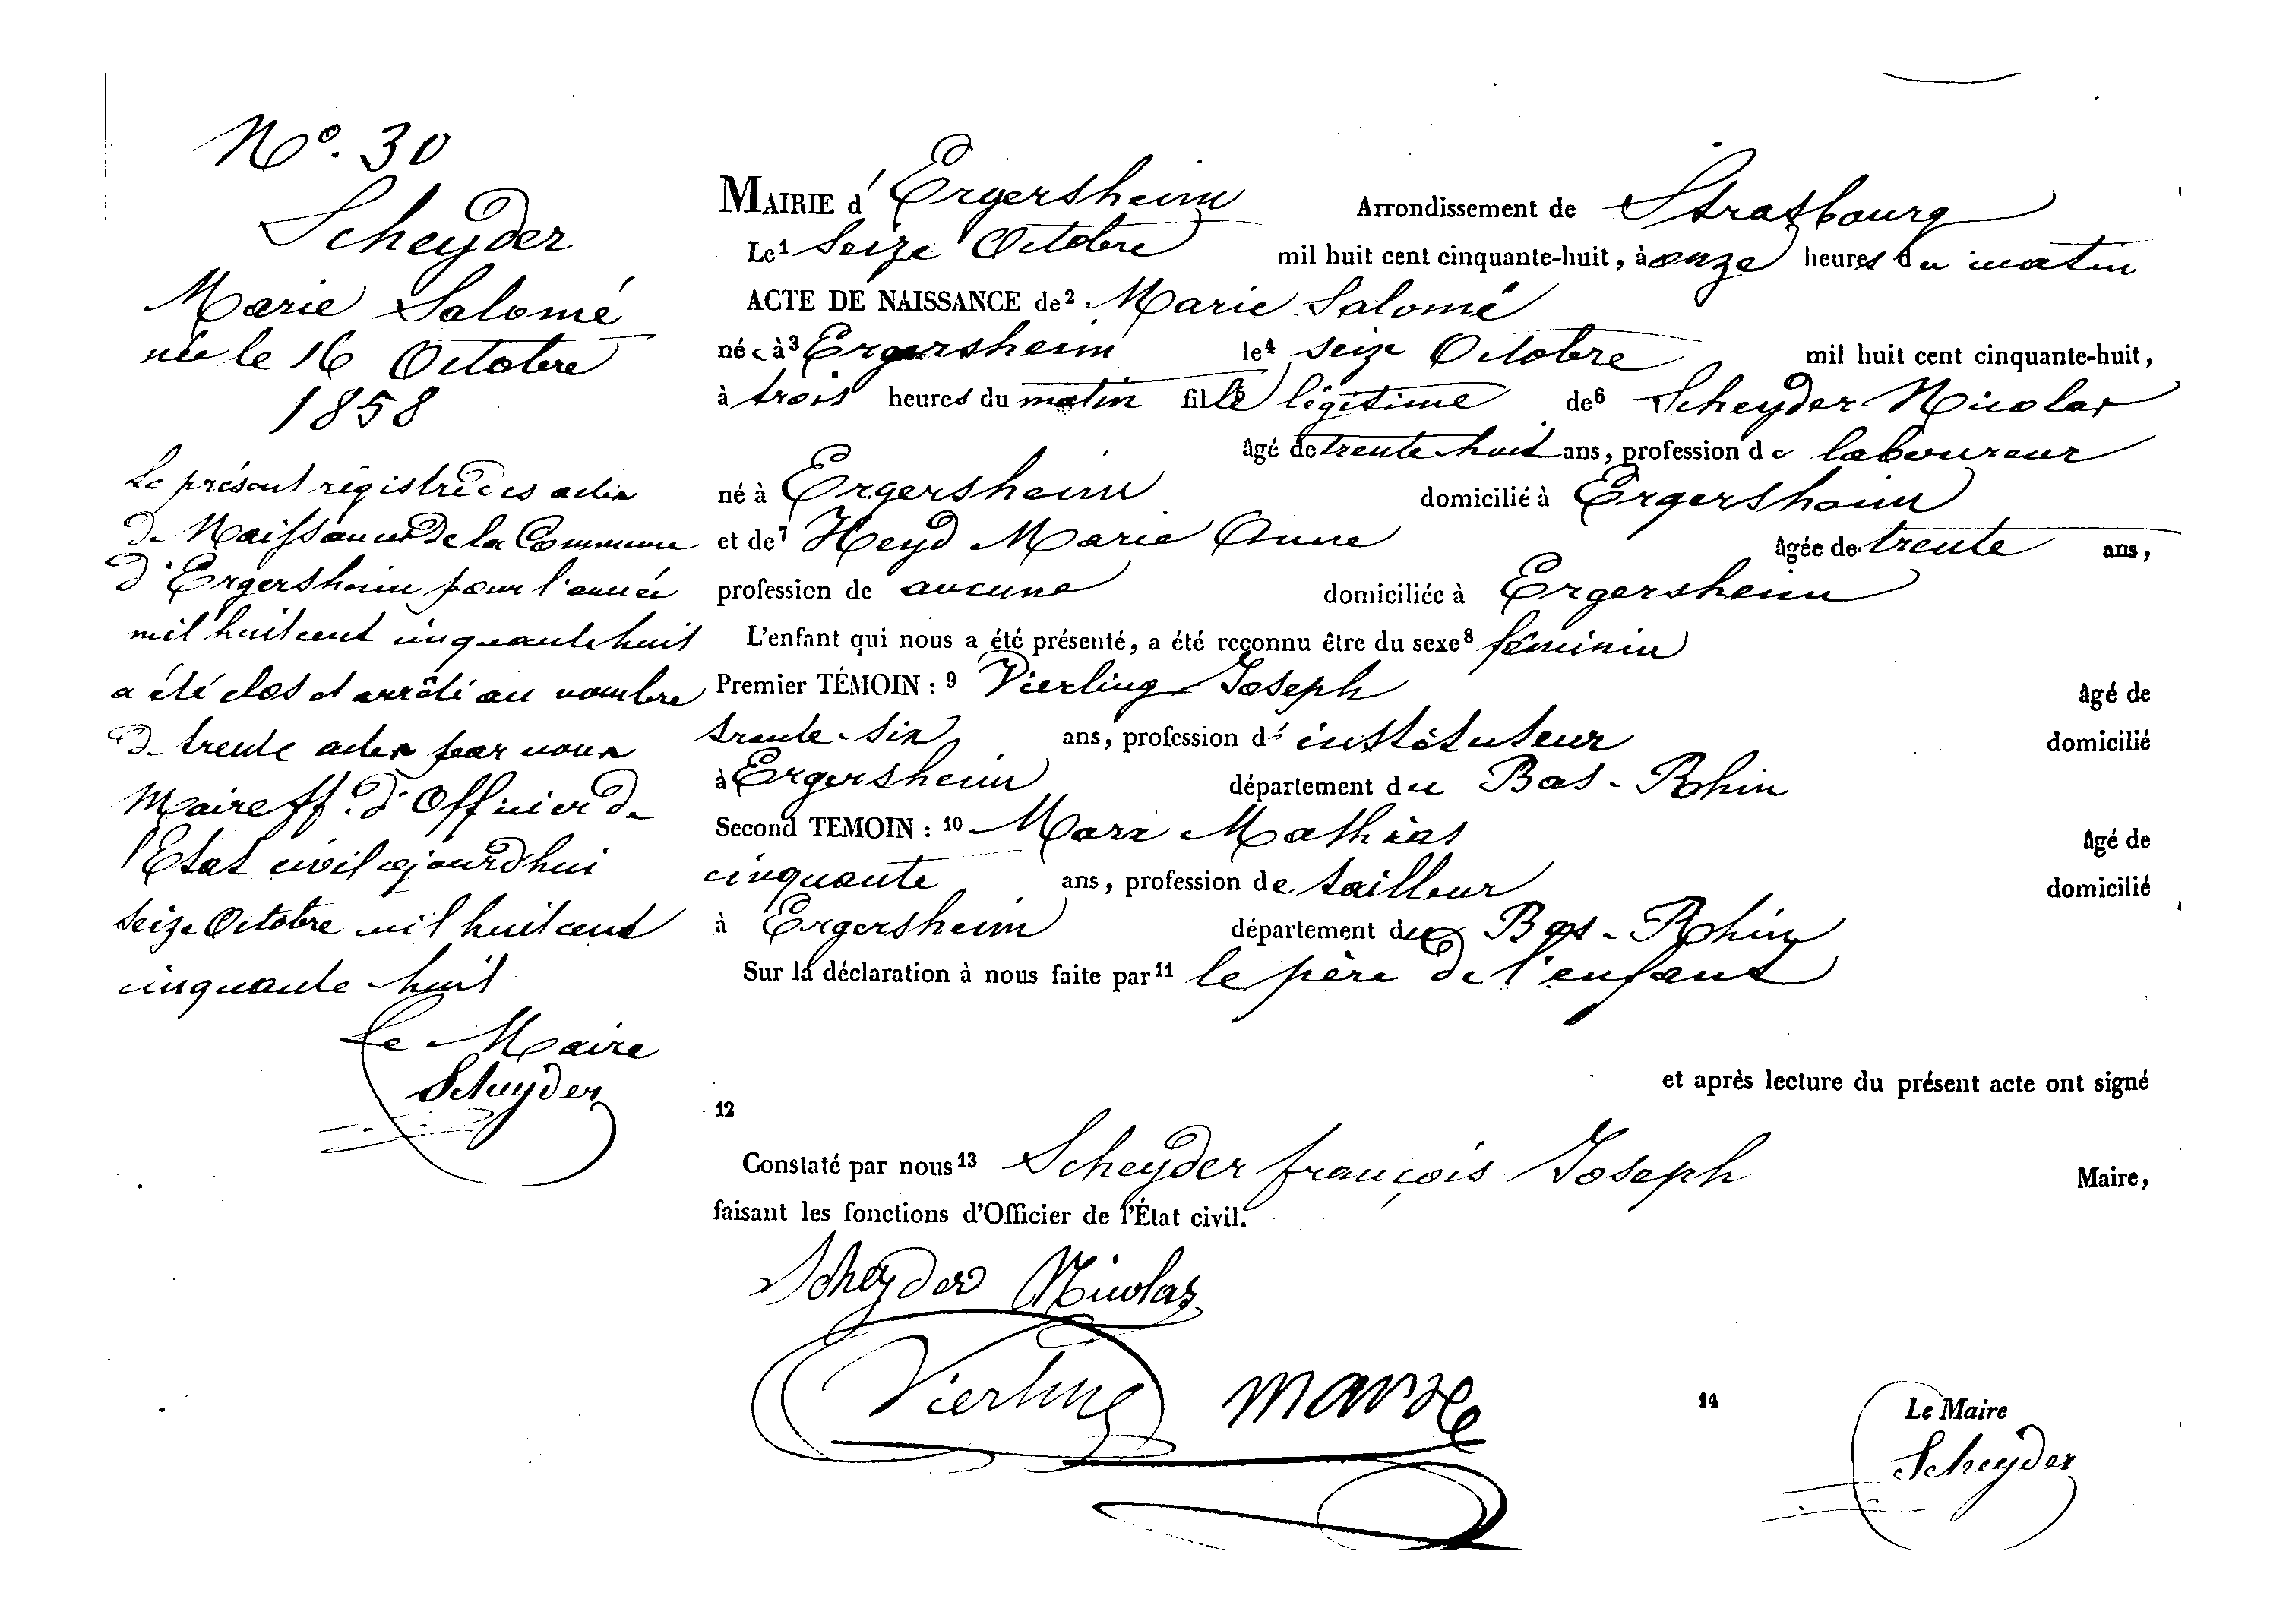 N° 30
Scheyder
Marie Salomé
née le 16 Octobre
1858
Le présent registre des actes
de Naissances de la Commune
d'Ergersheim pour l'année
mil huit cent cinquante huit
a été clos et arrêté au nombre
de trente actes par nous
Maire ff. d'Officier de
l'Etat civil ajourd'hui
seize Octobre mil huit cent
cinquante huit
Le Maire
Scheyder
MAIRIE d'Ergersheim Arrondissement de Strasbourg
Le¹ Seize Octobre mil huit cent cinquante-huit, à onze heures du matin
ACTE DE NAISSANCE de² Marie Salomé
née à³ Ergersheim le⁴ seize Octobre mil huit cent cinquante-huit,
à trois heures du matin fille⁵ légitime de⁶ Scheyder Nicolas
âgé de trente huit ans, profession de laboureur
né à Ergersheim domicilié à Ergersheim
et de⁷ Heyd Marie Anne âgée de trente ans,
profession de aucune domiciliée à Ergersheim
L'enfant qui nous a été présenté, a été reconnu être du sexe⁸ féminin
Premier TÉMOIN : ⁹ Vierling Joseph âgé de
trente-six ans, profession d'instituteur domicilié
à Ergersheim département du Bas-Rhin
Second TEMOIN : ¹⁰ Marx Mathias âgé de
cinquante ans, profession de tailleur domicilié
à Ergersheim département du Bas-Rhin
Sur la déclaration à nous faite par¹¹ le père de l'enfant
et après lecture du présent acte ont signé
12
Constaté par nous¹³ Scheyder françois Joseph Maire,
faisant les fonctions d'Officier de l'État civil.
Scheyder Nicolas
Vierling Marx
14 Le Maire
Scheyder